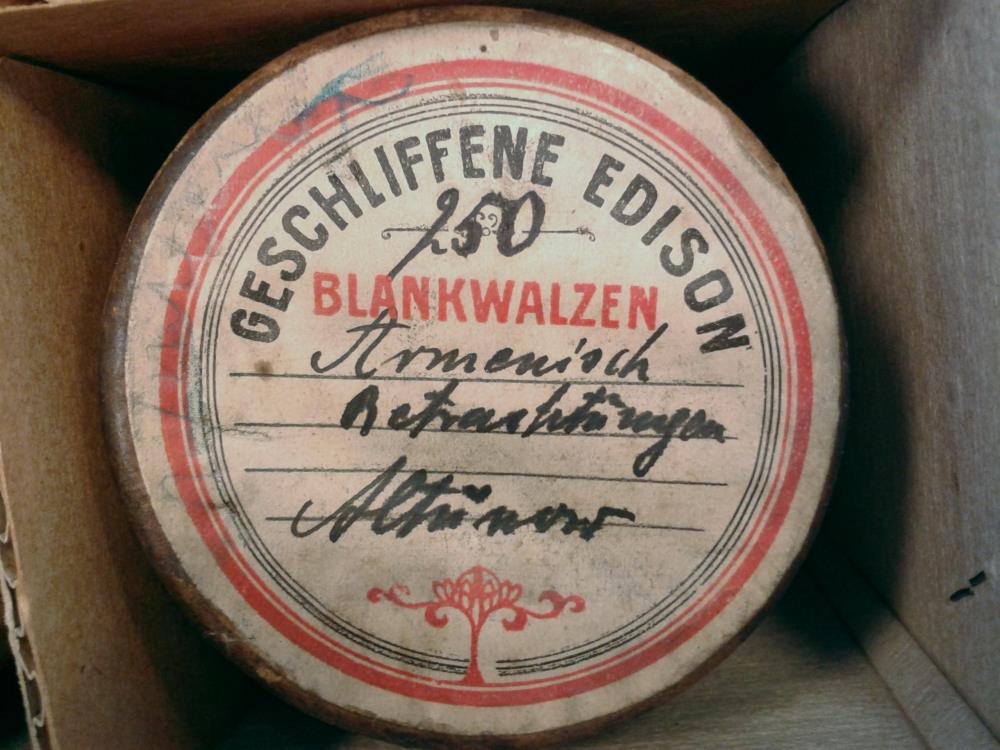 GESCHLIFFENE EDISON
250
BLANKWALZEN
Armenisch
Betrachtüngen
Altünow